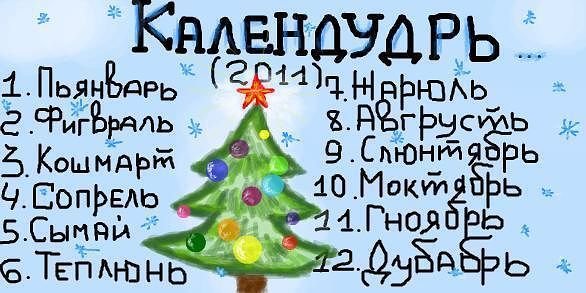 Календудрь ...
(2011)
1. Пьянварь
2. Фигвраль
3. Кошмарт
4. Сопрель
5. Сымай
6. Теплюнь
7. Жарюль
8. Авгрусть
9. Слюнтябрь
10. Моктябрь
11. Гноябрь
12. Дубабрь